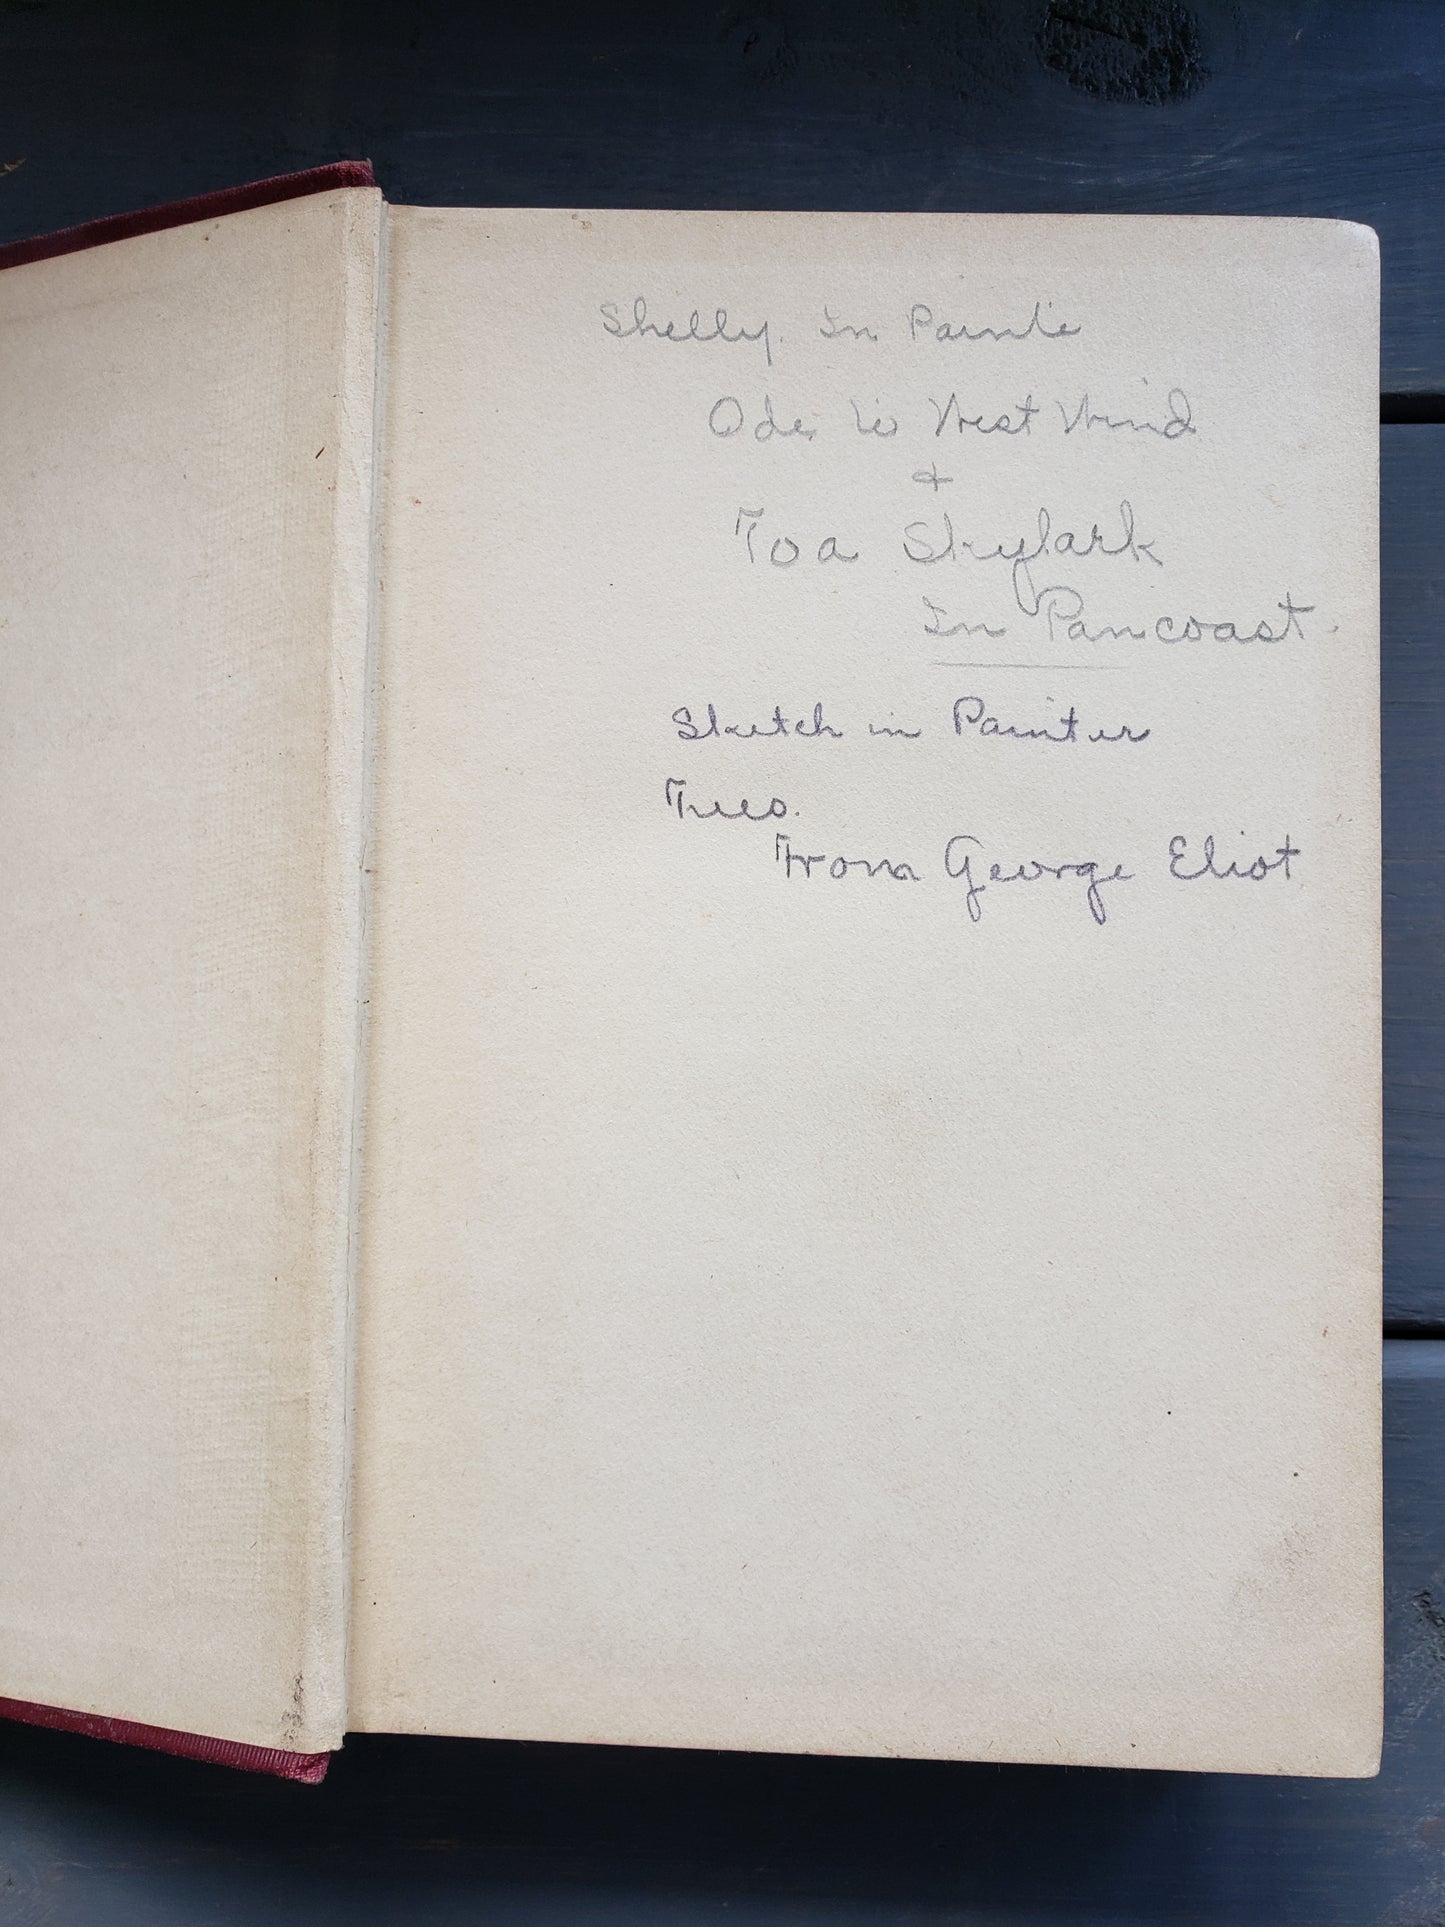 Shelly. In Painte
Ode to West Wind
+
To a Skylark
In Pancoast.
Sketch in Painter
Trees.
From George Eliot